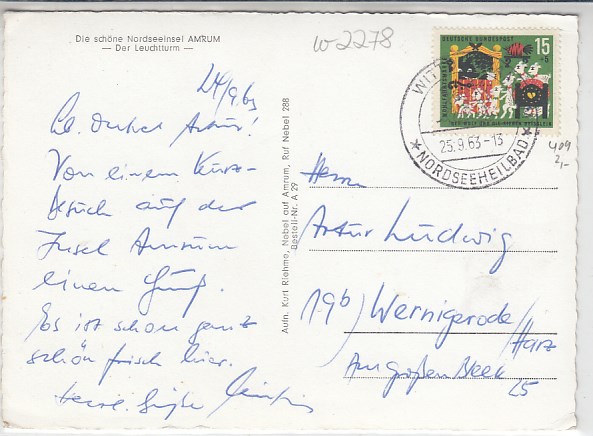 Die schöne Nordseeinsel AMRUM
— Der Leuchtturm —
W 2278
24/9.63
Lb. Onkel Artur!
Von einem Kurz-
besuch auf der
Insel Amrum
einen Gruß.
Es ist schon ganz
schön frisch hier.
Herzl. Grüße
Aufn. Kurt Riehme, Nebel auf Amrum, Ruf Nebel 288
Bestell-Nr. A 29
DEUTSCHE BUNDESPOST
15
+5
WOHLFAHRTSMARKE
DER WOLF UND DIE SIEBEN GEISSLEIN
WITT
25.9.63-13
NORDSEEHEILBAD
409
2,-
Herrn
Artur Ludwig
(19b) Wernigerode/
Harz
Am großen Bleek
25